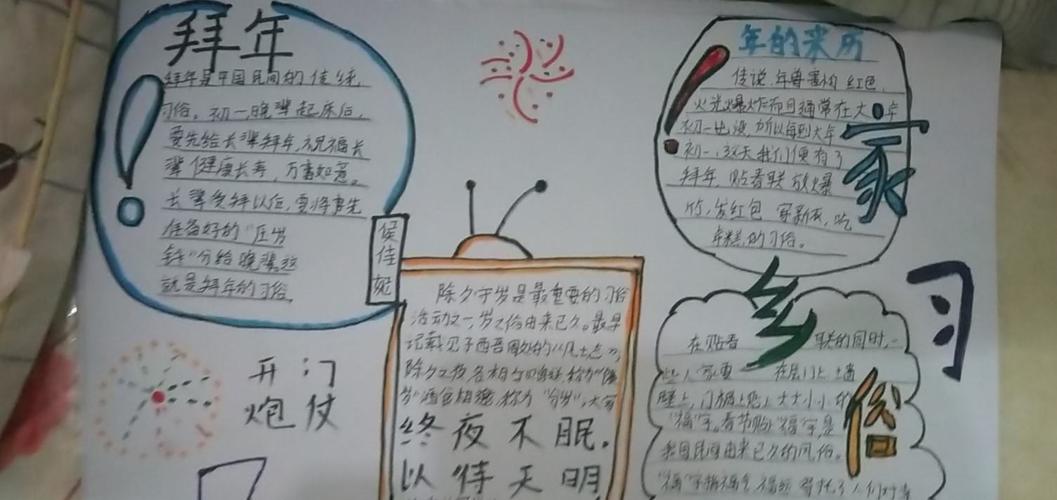 拜年
拜年是中国民间的传统
习俗。初一,晚辈起床后,
要先给长辈拜年,祝福长
辈健康长寿,万事如意。
长辈受拜以后,要将事先
准备好的“压岁
钱”分给晚辈,这
就是拜年的习俗。
侯佳妮
开门
炮仗
除夕守岁是最重要的习俗
活动之一,守岁之俗由来已久。最早
记载见于西晋
除夕之夜各相与赠送,称为“馈
岁”酒食相邀,称为“分岁”,大家
终夜不眠,
以待天明
年的来历
传说,年兽害怕红色,
火光爆炸而且通常在大年
初一出没,所以每到大年
初一,这天我们便有了
拜年,贴春联 放爆
竹,发红包 穿新衣,吃
年糕的习俗。
家
乡
习
俗
在贴春联的同时,一
些人家要在屋门上,墙
壁上,门楣上贴上大大小小的
“福”字。春节贴“福”字,是
我国民间由来已久的风俗。
“福”字指福气、福运